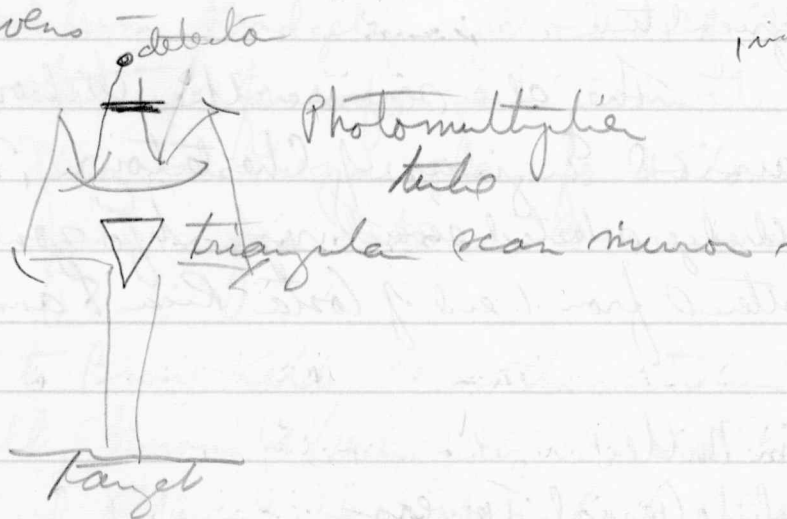 detector
Photomultiplier
tube
triangular scan mirror
Target